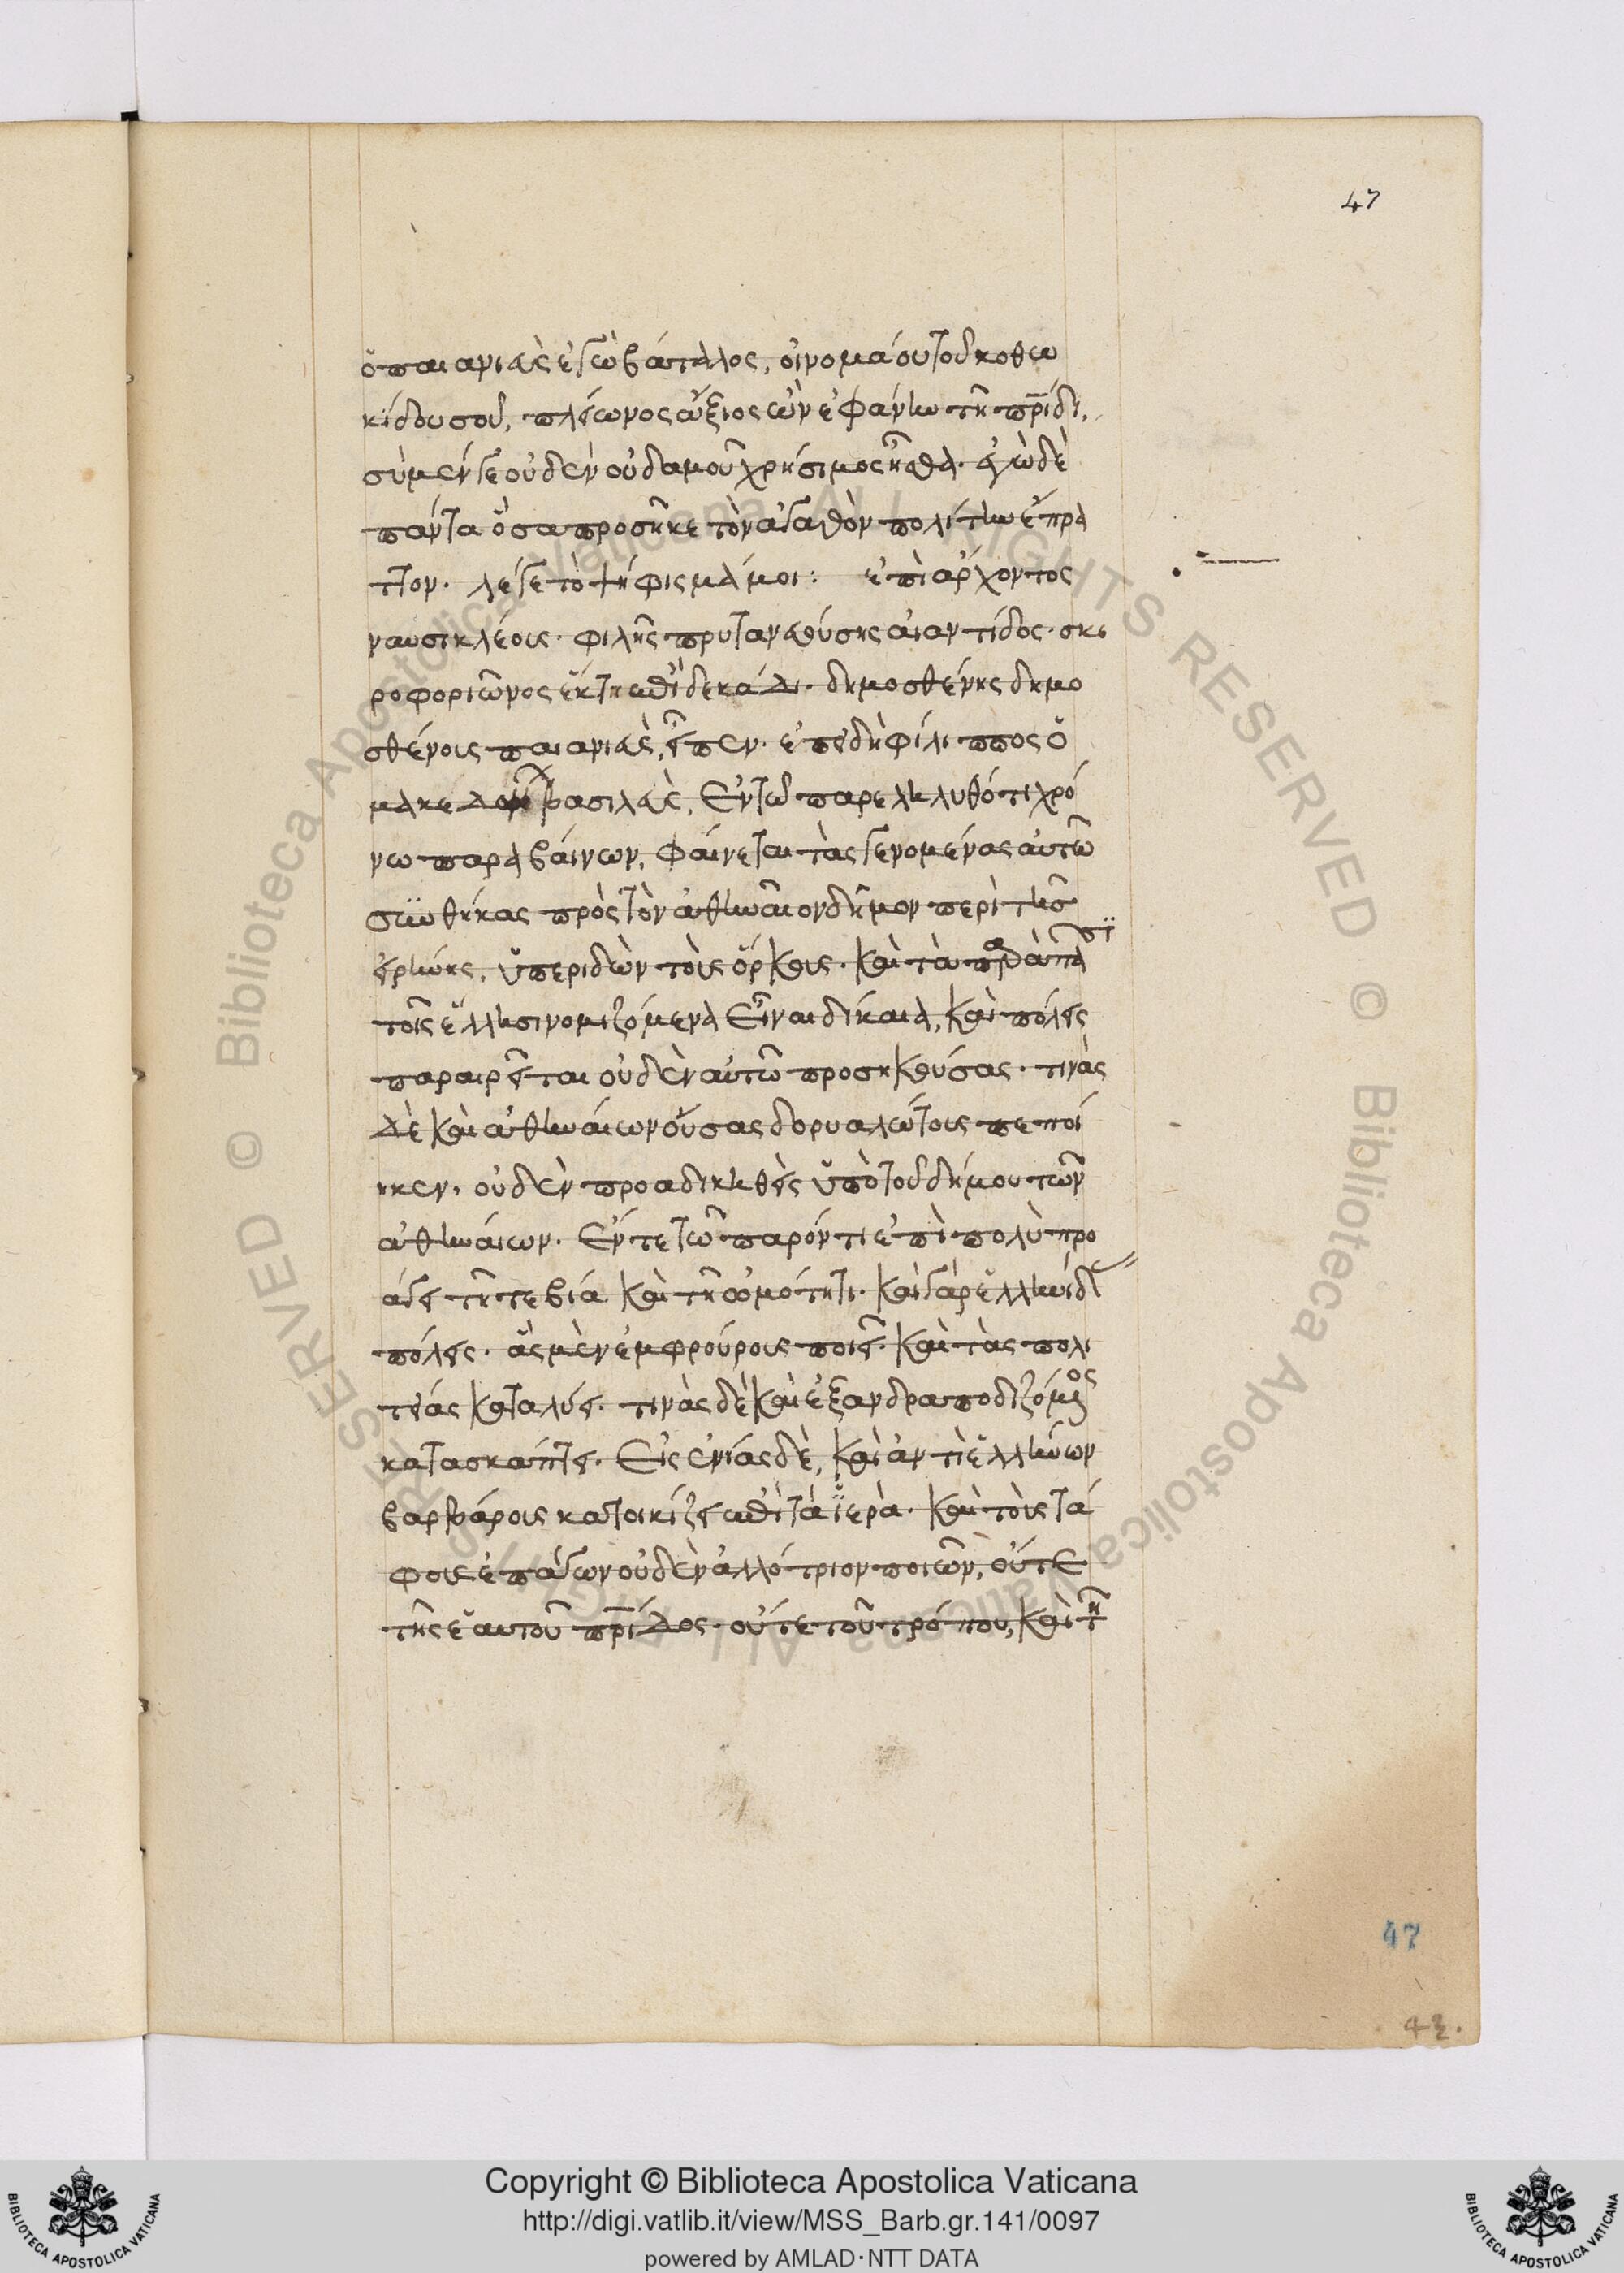 47
ὁ παιανιεὺς ἐγὼ βάταλος, οἰνομάου τοῦ κοθω
κίδου σοῦ, πλείωνος ἄξιος ὢν ἐφάνην τῇ πρίδι,
σὺ μέν γε οὐδὲν οὐδαμοῦ χρήσιμος ἦσθα. ἐγὼ δὲ
πάντα ὅσα προσῆκε τὸν ἀγαθὸν πολίτην ἔπρα
ττον. λέγε τὸ ψήφισμά μοι: ἐπὶ ἄρχοντος
ναυσικλέους. φυλῆς πρυτανευούσης αἰαντίδος. σκι
ροφοριῶνος ἕκτη ἐπὶ δεκάδι. δημοσθένης δημο
σθένους παιανιεὺς, εἶπεν. ἐπειδὴ φίλιππος ὁ
μακεδὼν βασιλεὺς, ἐν τῶ παρεληλυθότι χρό
νω παραβαίνων, φαίνεται τὰς γενομένας αὐτῶ
συνθήκας πρὸς τὸν ἀθηναῖον δῆμον περὶ τῆς
εἰρήνης, ὑπεριδὼν τοὺς ὅρκους. καὶ τὰ παρὰ πᾶσι
τοῖς ἕλλησι νομιζόμενα εἶναι δίκαια, καὶ πόλεις
παραιρεῖται οὐδὲν αὐτῶ προσηκούσας. τινὰς
δὲ καὶ ἀθηναίων οὔσας δορυαλώτους πεποί
ηκεν. οὐδὲν προαδικηθεὶς ὑπὸ τοῦ δήμου τῶν
ἀθηναίων. ἔν τε τῶ παρόντι ἐπὶ πολὺ προ
άγει τῇ τε βία καὶ τῇ ὠμότητι. καὶ γὰρ ἑλληνίδας
πόλεις. ἃς μὲν ἐμφρούρους ποιεῖ. καὶ τὰς πολι
τείας καταλύει. τινὰς δὲ καὶ ἐξανδραποδιζόμενος
κατασκάπτει. εἰς ἐνίας δὲ, καὶ ἀντὶ ἑλλήνων
βαρβάρους κατοικίζει ἐπὶ τὰ ἱερὰ. καὶ τοὺς τά
φους ἐπάγων οὐδὲν ἀλλότριον ποιῶν, οὔτε
τῆς ἑαυτοῦ πρίδος. οὔτε τοῦ τρόπου, καὶ τῆ
47
42.
© Biblioteca Apostolica Vaticana ALL RIGHTS RESERVED
© Biblioteca Apostolica Vaticana ALL RIGHTS RESERVED
Copyright © Biblioteca Apostolica Vaticana
http://digi.vatlib.it/view/MSS_Barb.gr.141/0097
powered by AMLAD·NTT DATA
BIBLIOTECA APOSTOLICA VATICANA
BIBLIOTECA APOSTOLICA VATICANA